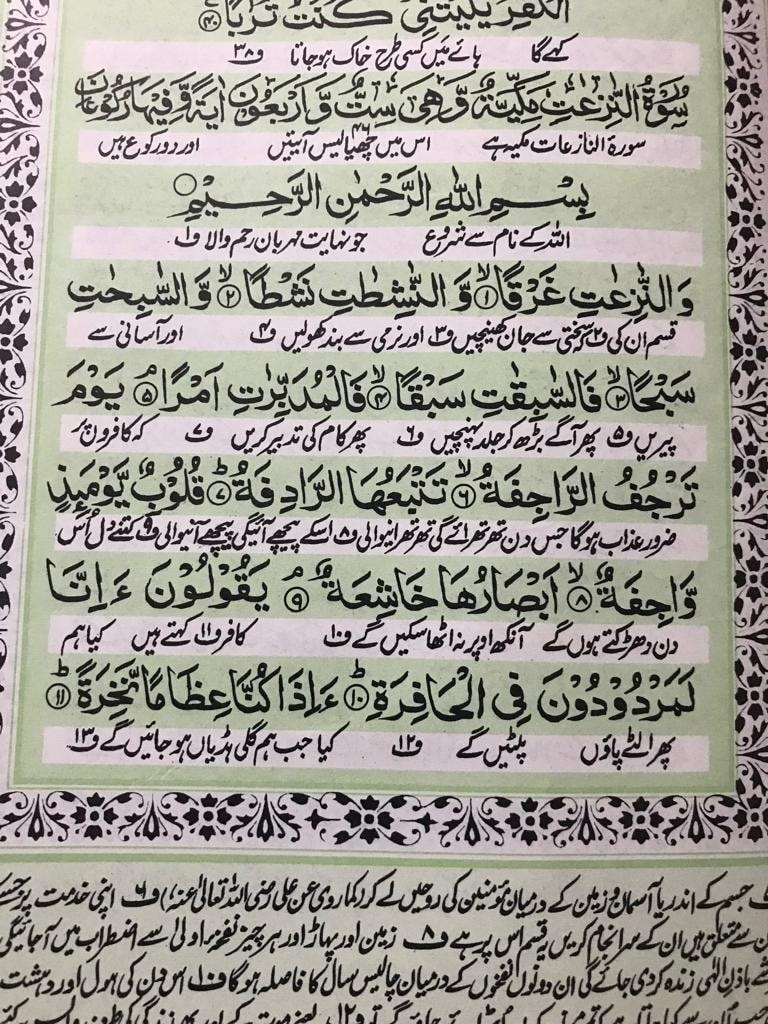 الْكٰفِرُ يٰلَيْتَنِيْ كُنْتُ تُرٰبًا ۴۰
کہے گا ہائے میں کسی طرح خاک ہو جاتا ف۳۸
سُوْرَةُ النّٰزِعٰتِ مَكِّيَّةٌ وَّهِيَ سِتٌّ وَّاَرْبَعُوْنَ اٰيَةً وَّفِيْهَا رُكُوْعَانِ
سورۂ النازعات مکیہ ہے اس میں چھیالیس ۴۶ آیتیں اور دو رکوع ہیں
بِسْمِ اللهِ الرَّحْمٰنِ الرَّحِيْمِ
اللہ کے نام سے شروع جو نہایت مہربان رحم والا ف۱
وَالنّٰزِعٰتِ غَرْقًا ۙ۱ وَّ النّٰشِطٰتِ نَشْطًا ۙ۲ وَّ السّٰبِحٰتِ
قسم ان کی ف۲ کہ سختی سے جان کھینچیں ف۳ اور نرمی سے بند کھولیں ف۴ اور آسانی سے
سَبْحًا ۙ۳ فَالسّٰبِقٰتِ سَبْقًا ۙ۴ فَالْمُدَبِّرٰتِ اَمْرًا ۘ۵ يَوْمَ
پیریں ف۵ پھر آگے بڑھ کر جلد پہنچیں ف۶ پھر کام کی تدبیر کریں ف۷ کہ کافروں پر
تَرْجُفُ الرَّاجِفَةُ ۙ۶ تَتْبَعُهَا الرَّادِفَةُ ؕ۷ قُلُوْبٌ يَّوْمَىِٕذٍ
ضرور عذاب ہو گا جس دن تھر تھرائے گی تھر تھرانیوالی ف۸ اسکے پیچھے آئیگی پیچھے آنیوالی ف۹ کتنے دل اُس
وَّاجِفَةٌ ۙ۸ اَبْصَارُهَا خَاشِعَةٌ ۘ۹ يَقُوْلُوْنَ ءَاِنَّا
دن دھڑکتے ہوں گے آنکھ اوپر نہ اٹھا سکیں گے ف۱۰ کافر ف۱۱ کہتے ہیں کیا ہم
لَمَرْدُوْدُوْنَ فِي الْحَافِرَةِ ؕ۱۰ ءَاِذَا كُنَّا عِظَامًا نَّخِرَةً ؕ۱۱
پھر الٹے پاؤں پلٹیں گے ف۱۲ کیا جب ہم گلی ہڈیاں ہو جائیں گے ف۱۳
جسم کے اندر یا آسمان و زمین کے درمیان مؤمنین کی روحیں لے کر (کما روی عن علی رضی اللہ تعالیٰ عنہ) ف۶ اپنی خدمت پر جس کے
سے متعلق ہیں ان کے سر انجام کریں یہ قسم اس پر ہے ف۸ زمین اور پہاڑ اور ہر چیز نفخۂ اولیٰ سے اضطراب میں آ جائیگی
شے باذنِ الٰہی زندہ کر دی جائے گی ان دونوں نفخوں کے درمیان چالیس سال کا فاصلہ ہو گا ف۱۰ اس دن کی ہول اور دہشت